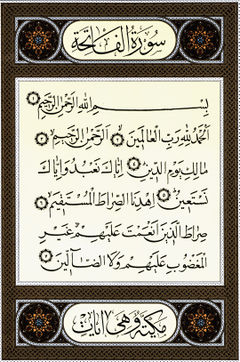 سورة الفاتحة
بِسْمِ اللَّهِ الرَّحْمَٰنِ الرَّحِيمِ ۝
الْحَمْدُ لِلَّهِ رَبِّ الْعَالَمِينَ ۝ الرَّحْمَٰنِ الرَّحِيمِ ۝
مَالِكِ يَوْمِ الدِّينِ ۝ إِيَّاكَ نَعْبُدُ وَإِيَّاكَ
نَسْتَعِينُ ۝ اهْدِنَا الصِّرَاطَ الْمُسْتَقِيمَ ۝
صِرَاطَ الَّذِينَ أَنْعَمْتَ عَلَيْهِمْ غَيْرِ
الْمَغْضُوبِ عَلَيْهِمْ وَلَا الضَّالِّينَ ۝
مكية وهي آيات